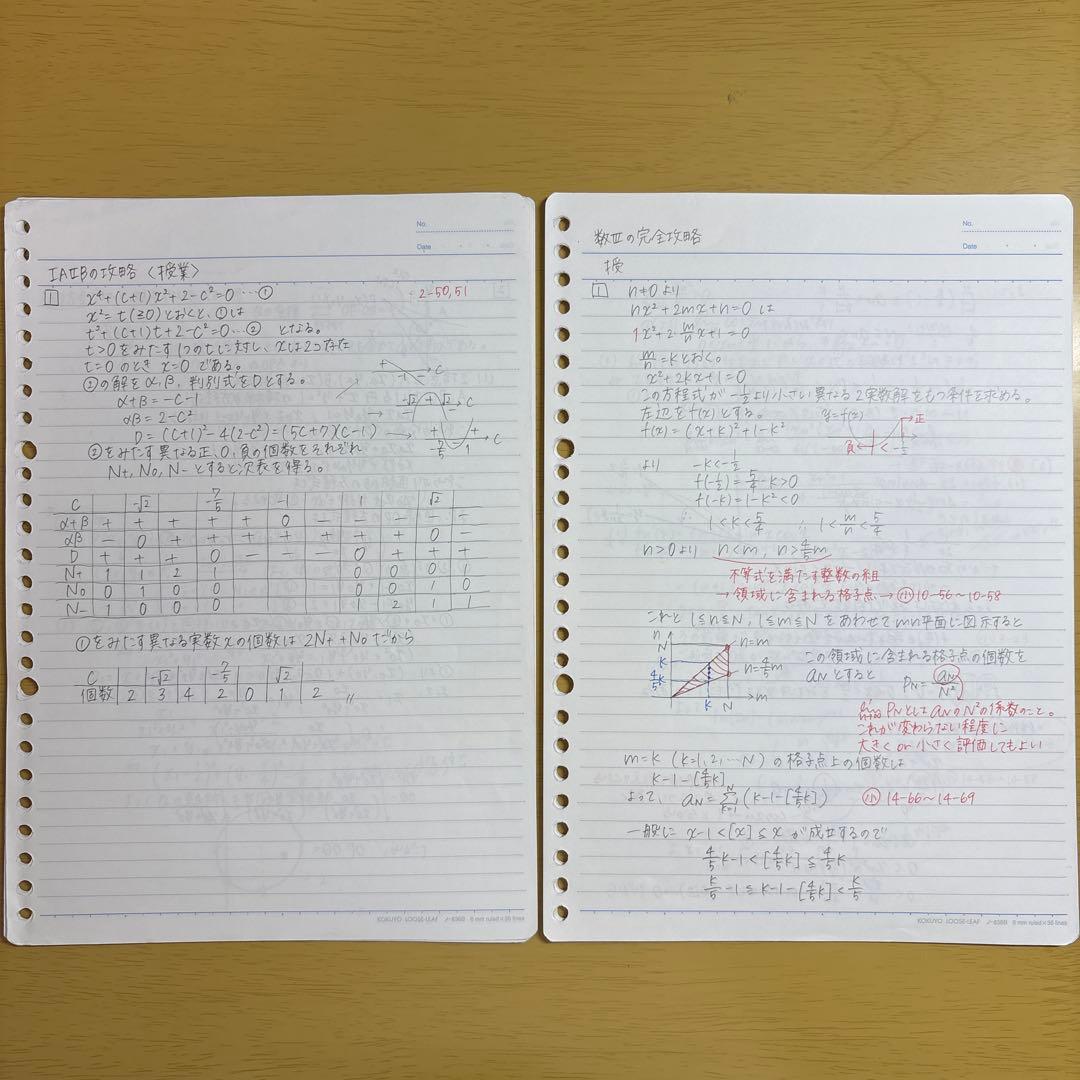 No.
Date
ⅠAⅡBの攻略〈授業〉
1 x⁴+(c+1)x²+2-c²=0 …① 2-50,51
x²=t(≧0)とおくと、①は
t²+(c+1)t+2-c²=0…② となる。
t>0をみたす1つのtに対し、xは2つ存在
t=0のとき x=0 である。
②の解をα,β, 判別式をDとする。
α+β=-c-1
αβ=2-c²
D=(c+1)²-4(2-c²)=(5c+7)(c-1)
+ -1 - c
-√2 + √2 c
- -
+ + c
-7/5 - 1
②をみたす異なる正、0、負の個数をそれぞれ
N+, N0, N- とすると次表を得る。
c | | -√2 | | -7/5 | | -1 | | 1 | | √2 |
α+β | + | + | + | + | + | 0 | - | - | - | - | -
αβ | - | 0 | + | + | + | + | + | + | + | 0 | -
D | + | + | + | 0 | - | - | - | 0 | + | + | +
N+ | 1 | 1 | 2 | 1 | | | | 0 | 0 | 0 | 1
N0 | 0 | 1 | 0 | 0 | | | | 0 | 0 | 1 | 0
N- | 1 | 0 | 0 | 0 | | | | 1 | 2 | 1 | 1
①をみたす異なる実数xの個数は 2N+ + N0 だから
c | | -√2 | | -7/5 | | √2 |
個数 | 2 | 3 | 4 | 2 | 0 | 1 | 2 〃
KOKUYO LOOSE-LEAF ノ-836B 6 mm ruled×36 lines
No.
Date
数Ⅲの完全攻略
授
1 n≠0より
nx²+2mx+n=0 は
1x²+2・m/n x+1=0
m/n=kとおく。
x²+2kx+1=0
この方程式が -1/2より小さい異なる2実数解をもつ条件を求める。
左辺をf(x)とする。 y=f(x)
f(x)=(x+k)²+1-k² 正
負 < -1/2
より -k<-1/2
f(-1/2)=5/4-k>0
f(-k)=1-k²<0
∴ 1<k<5/4 ∴ 1<m/n<5/4
n>0より n<m, n>4/5m
不等式を満たす整数の組
→領域に含まれる格子点→小10-56~10-58
これと 1≦n≦N, 1≦m≦N をあわせて mn平面に図示すると
n
N
k
4/5k
n=m
n=4/5m
m
k N
この領域に含まれる格子点の個数を
aNとすると PN=aN/N²
lim PNとしてaNのN²の係数のこと。
これが変わらない程度に
大きく or 小さく評価してもよい
m=k (k=1,2,…N) の格子点上の個数は
k-1-[4/5k]
よって、 aN=Σ[k=1→N](k-1-[4/5k]) 小14-66~14-69
一般に x-1<[x]≦x が成立するので
4/5k-1<[4/5k]≦4/5k
k/5-1≦k-1-[4/5k]<k/5
KOKUYO LOOSE-LEAF ノ-836B 6 mm ruled×36 lines